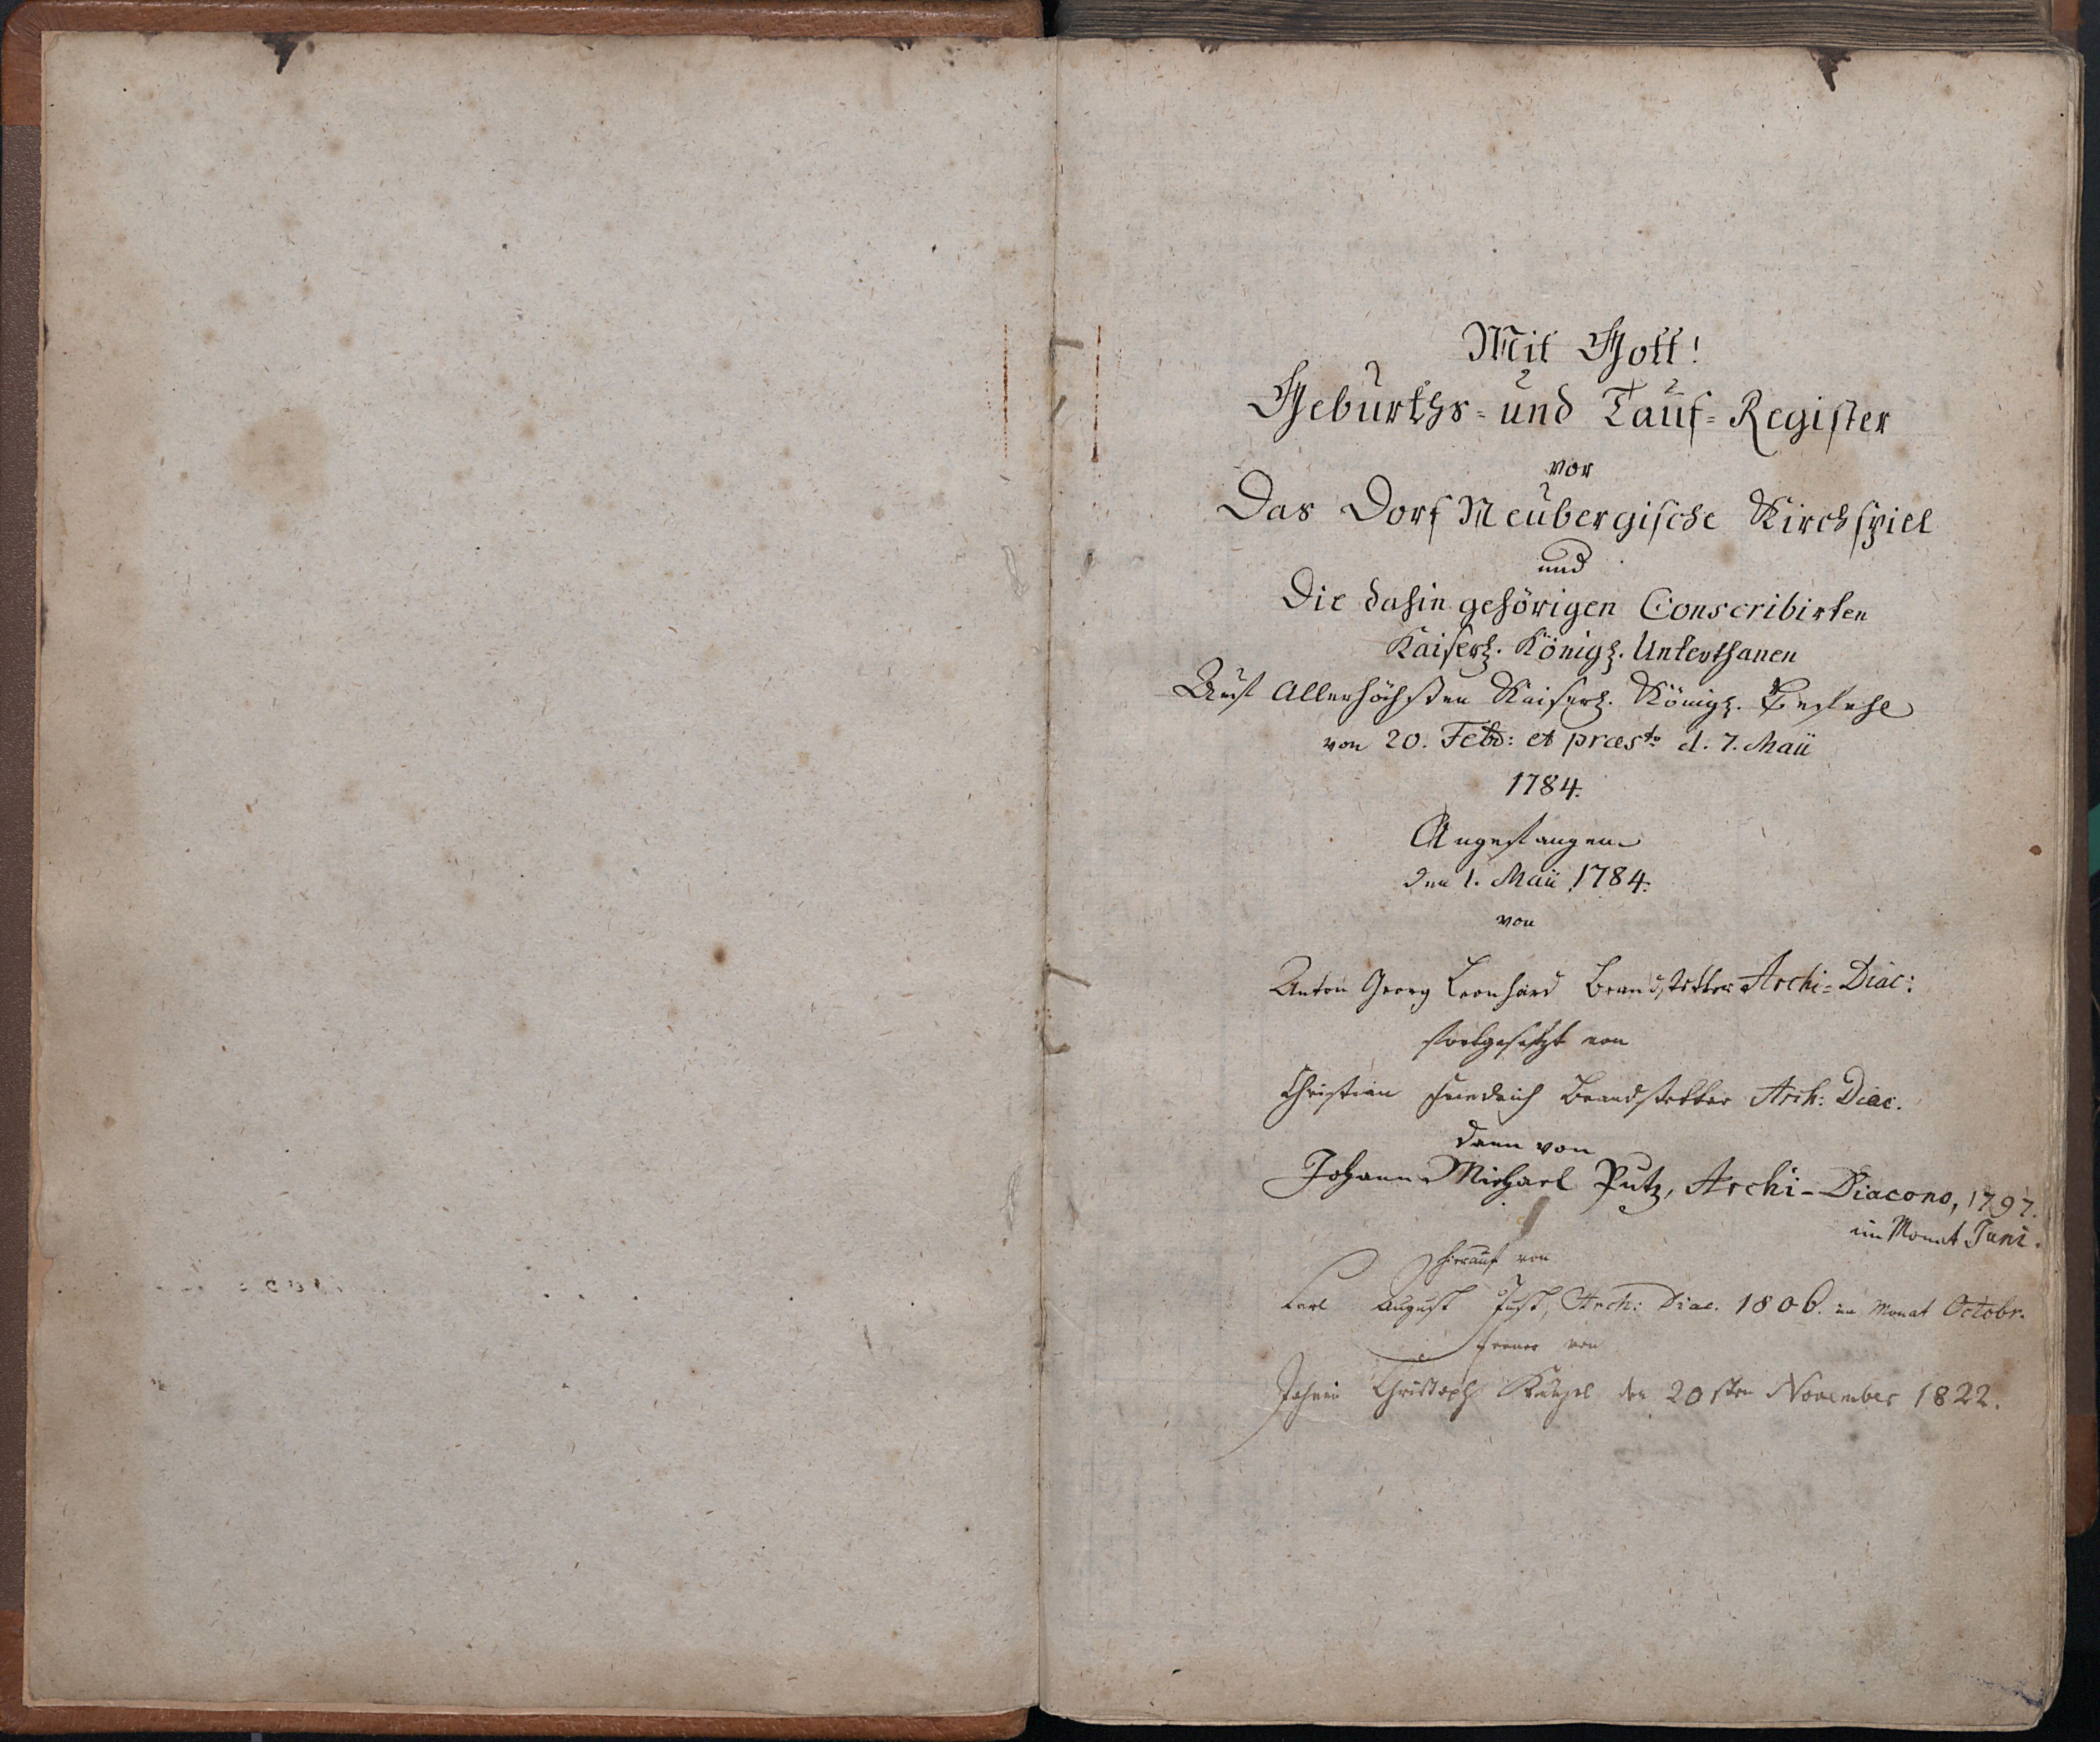 Mit Gott!
Geburths- und Tauf-Register
vor
Das Dorf Neubergische Kirchspiel
und
Die dahin gehörigen Conscribirten
Kaiserl. Königl. Unterthanen
Auf Allerhöchsten Kaiserl. Königl. Befehl
von 20. Febr: et praes.to d. 7. Maii
1784.
Angefangen
den 1. Maii 1784.
von
Anton Georg Leonhard Brandstetter Archi-Diac:
fortgesetzt von
Christian Friedrich Brandstetter Arch: Diac.
dann von
Johann Michael Putz, Archi-Diacono, 1797.
im Monat Juni.
hierauf von
Carl August Just, Arch: Diac. 1806. im Monat Octobr.
ferner von
Johann Christoph den 20sten November 1822.